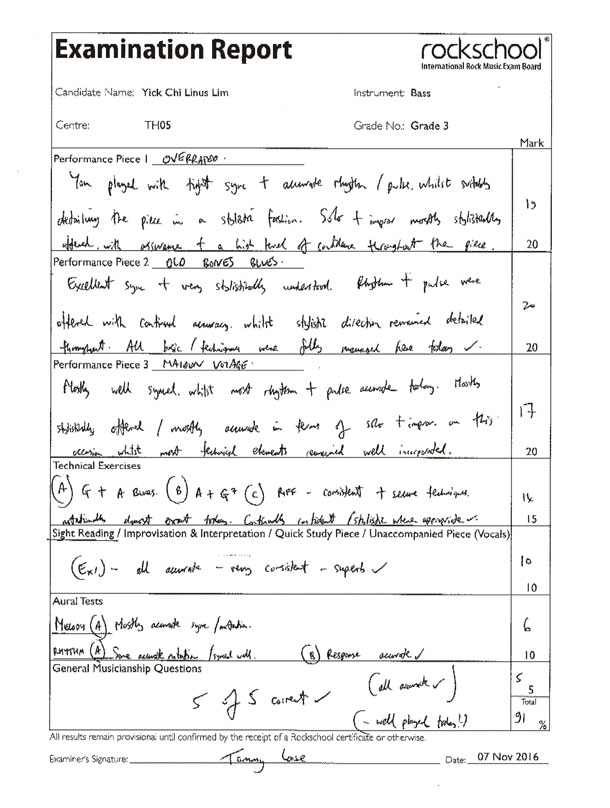 Examination Report
rockschool®
International Rock Music Exam Board
Candidate Name: Yick Chi Linus Lim Instrument: Bass
Centre: TH05 Grade No.: Grade 3
Mark
Performance Piece 1 OVERRATED.
You played with tight sync + accurate rhythm / pulse, whilst suitably
detailing the piece in a stylistic fashion. Solo + improv mostly stylistically
offered, with assurance + a high level of confidence throughout the piece.
19
20
Performance Piece 2 OLD BONES BLUES.
Excellent sync + very stylistically understood. Rhythm + pulse were
offered with continual accuracy, whilst stylistic direction remained detailed
throughout. All basic / techniques were fully managed here today ✓.
20
20
Performance Piece 3 MALOUN VOYAGE.
Mostly well synced, whilst most rhythm + pulse accurate today. Mostly
stylistically offered / mostly accurate in terms of solo + improv. on this
occasion whilst most technical elements remained well incorporated.
17
20
Technical Exercises
(A) G + A Blues. (B) A + G7 (C) RIFF - consistent + secure techniques.
notationally almost exact today. Continually confident / stylistic where appropriate ✓.
14
15
Sight Reading / Improvisation & Interpretation / Quick Study Piece / Unaccompanied Piece (Vocals)
(Ex1) - all accurate - very consistent - superb ✓
10
10
Aural Tests
MELODY (A) Mostly accurate sync / notation.
RHYTHM (A) Some accurate notation / synced well. (B) Response accurate ✓
6
10
General Musicianship Questions
5 of 5 correct ✓
(all accurate ✓)
(- well played today!)
5
5
Total
91 %
All results remain provisional until confirmed by the receipt of a Rockschool certificate or otherwise.
Examiner's Signature: Tommy Date: 07 Nov 2016